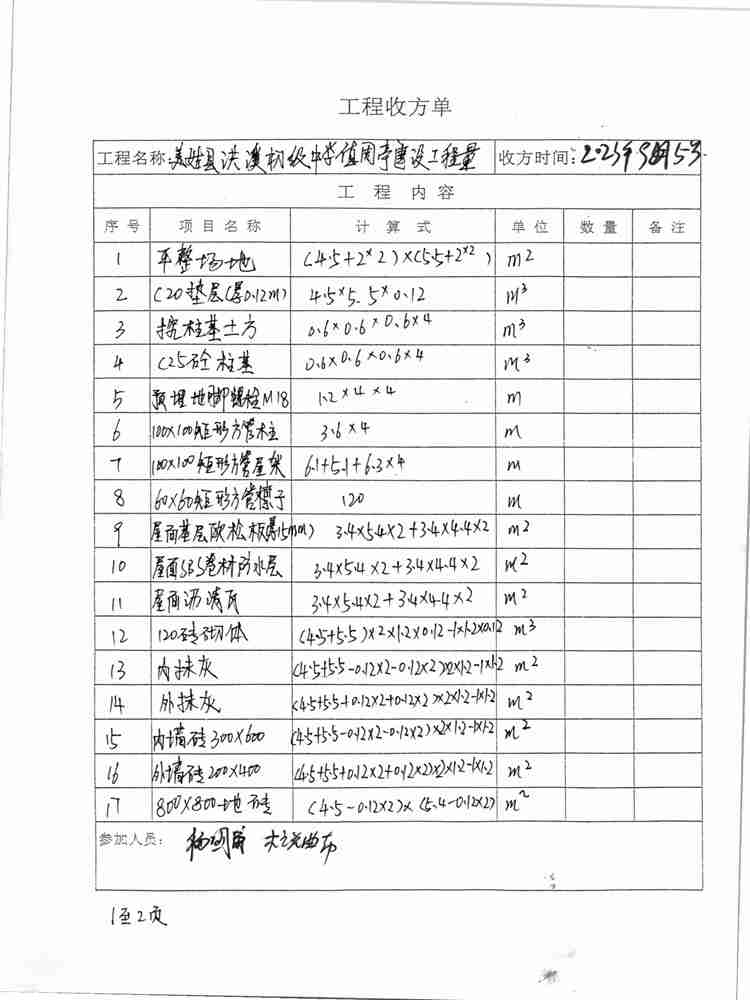 工程收方单
工程名称:美姑县洪溪初级中学值周亭建设工程量 收方时间:2023年9月5号
工 程 内 容
序 号 项 目 名 称 计 算 式 单 位 数 量 备 注
1 平整场地 (4.5+2×2)×(5.5+2×2) m2
2 C20垫层(厚0.12m) 4.5×5.5×0.12 m3
3 挖柱基土方 0.6×0.6×0.6×4 m3
4 C25砼柱基 0.6×0.6×0.6×4 m3
5 预埋地脚螺栓M18 1.2×4×4 m
6 100×100矩形方管柱 3.6×4 m
7 100×100矩形方管屋架 6.1+5.1+6.3×4 m
8 60×60矩形方管檩子 120 m
9 屋面基层欧松板(厚15mm) 3.4×5.4×2+3.4×4.4×2 m2
10 屋面SBS卷材防水层 3.4×5.4×2+3.4×4.4×2 m2
11 屋面沥清瓦 3.4×5.4×2+3.4×4.4×2 m2
12 120砖砌体 (4.5+5.5)×2×1.2×0.12-1×1.2×0.12 m3
13 内抹灰 (4.5+5.5-0.12×2-0.12×2)×2×1.2-1×1.2 m2
14 外抹灰 (4.5+5.5+0.12×2+0.12×2)×2×1.2-1×1.2 m2
15 内墙砖300×600 (4.5+5.5-0.12×2-0.12×2)×2×1.2-1×1.2 m2
16 外墙砖200×400 (4.5+5.5+0.12×2+0.12×2)×2×1.2-1×1.2 m2
17 800×800地砖 (4.5-0.12×2)×(5.4-0.12×2) m2
参加人员:
1至2页